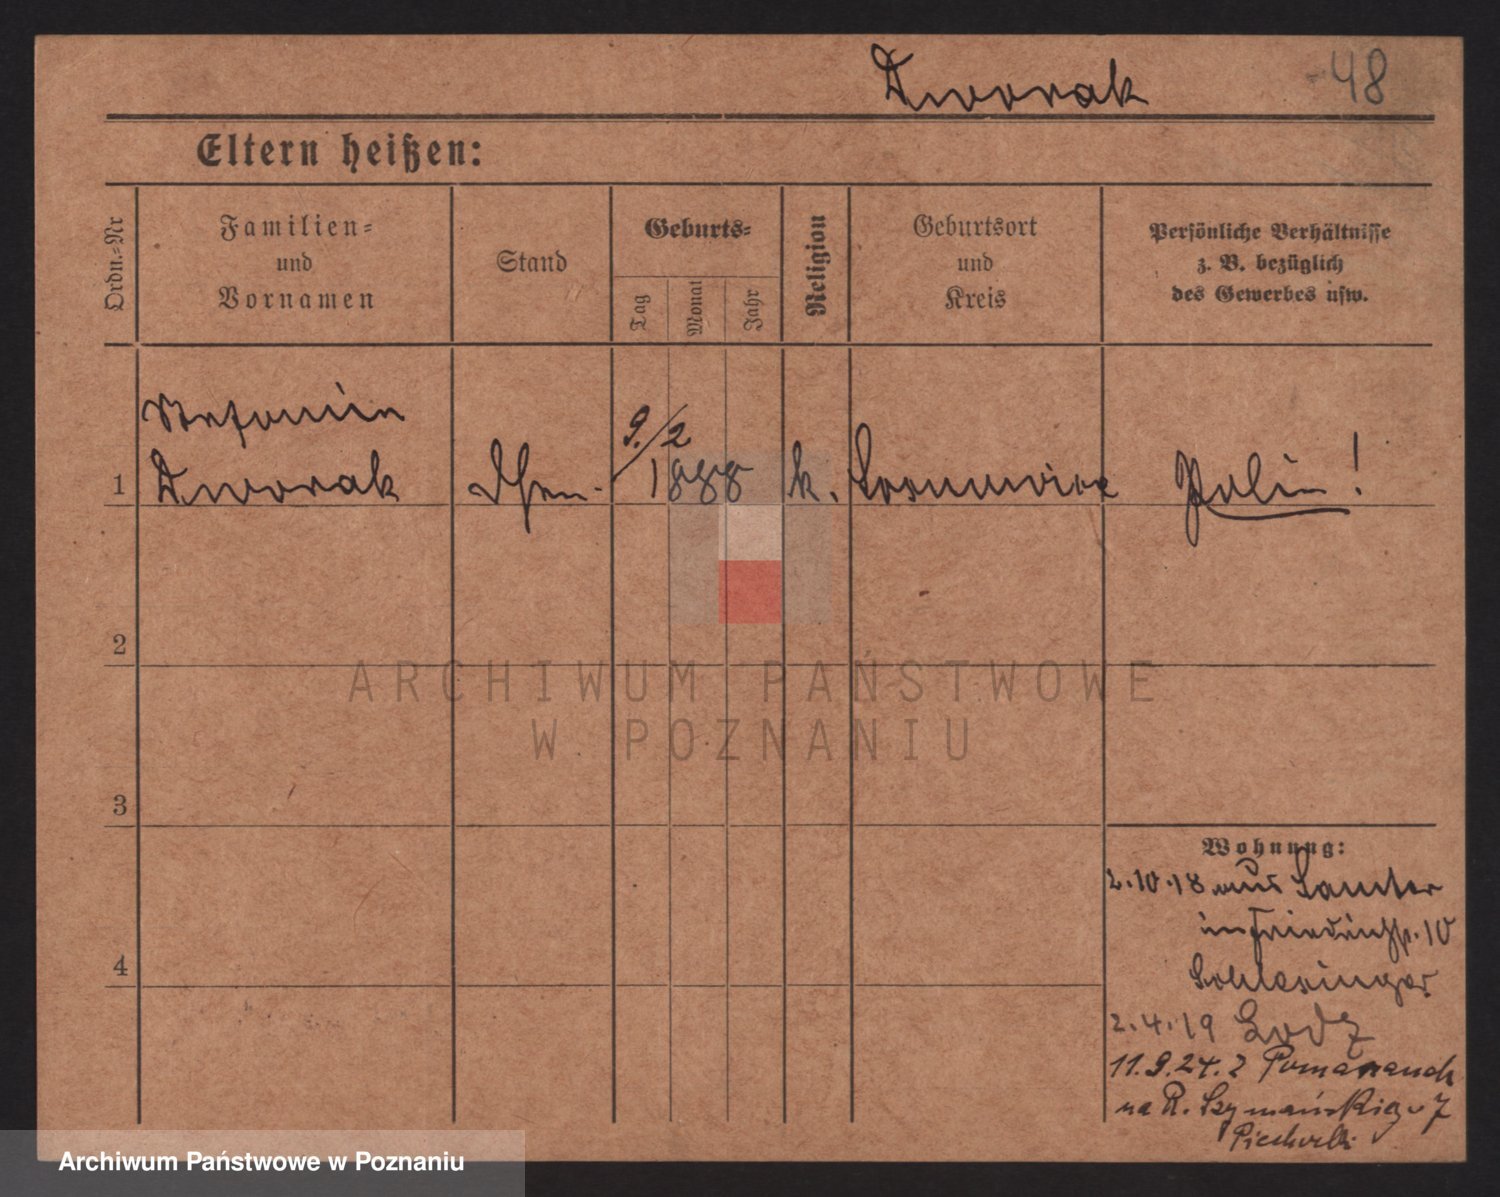 Dworak
48
Eltern heißen:
Ordn.-Nr
Familien-
und
Vornamen
Stand
Geburts-
Tag
Monat
Jahr
Religion
Geburtsort
und
Kreis
Persönliche Verhältnisse
z. B. bezüglich
des Gewerbes usw.
Stefanie
9./2
1
Dworak
1888
k.
Sosnowice
Polin!
2
ARCHIWUM PAŃSTWOWE
W POZNANIU
3
Wohnung:
2.10.18 aus Samter
in Friedrichstr. 10
Schlesinger
4
2.4.19 Lodz
11.9.24. z
na R. Szymańskiego 7
Archiwum Państwowe w Poznaniu